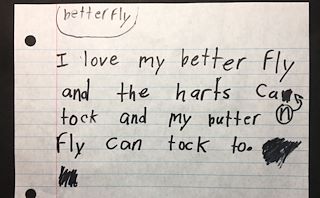 betterfly
I love my better fly
and the harts can
tock and my butter
fly can tock to.